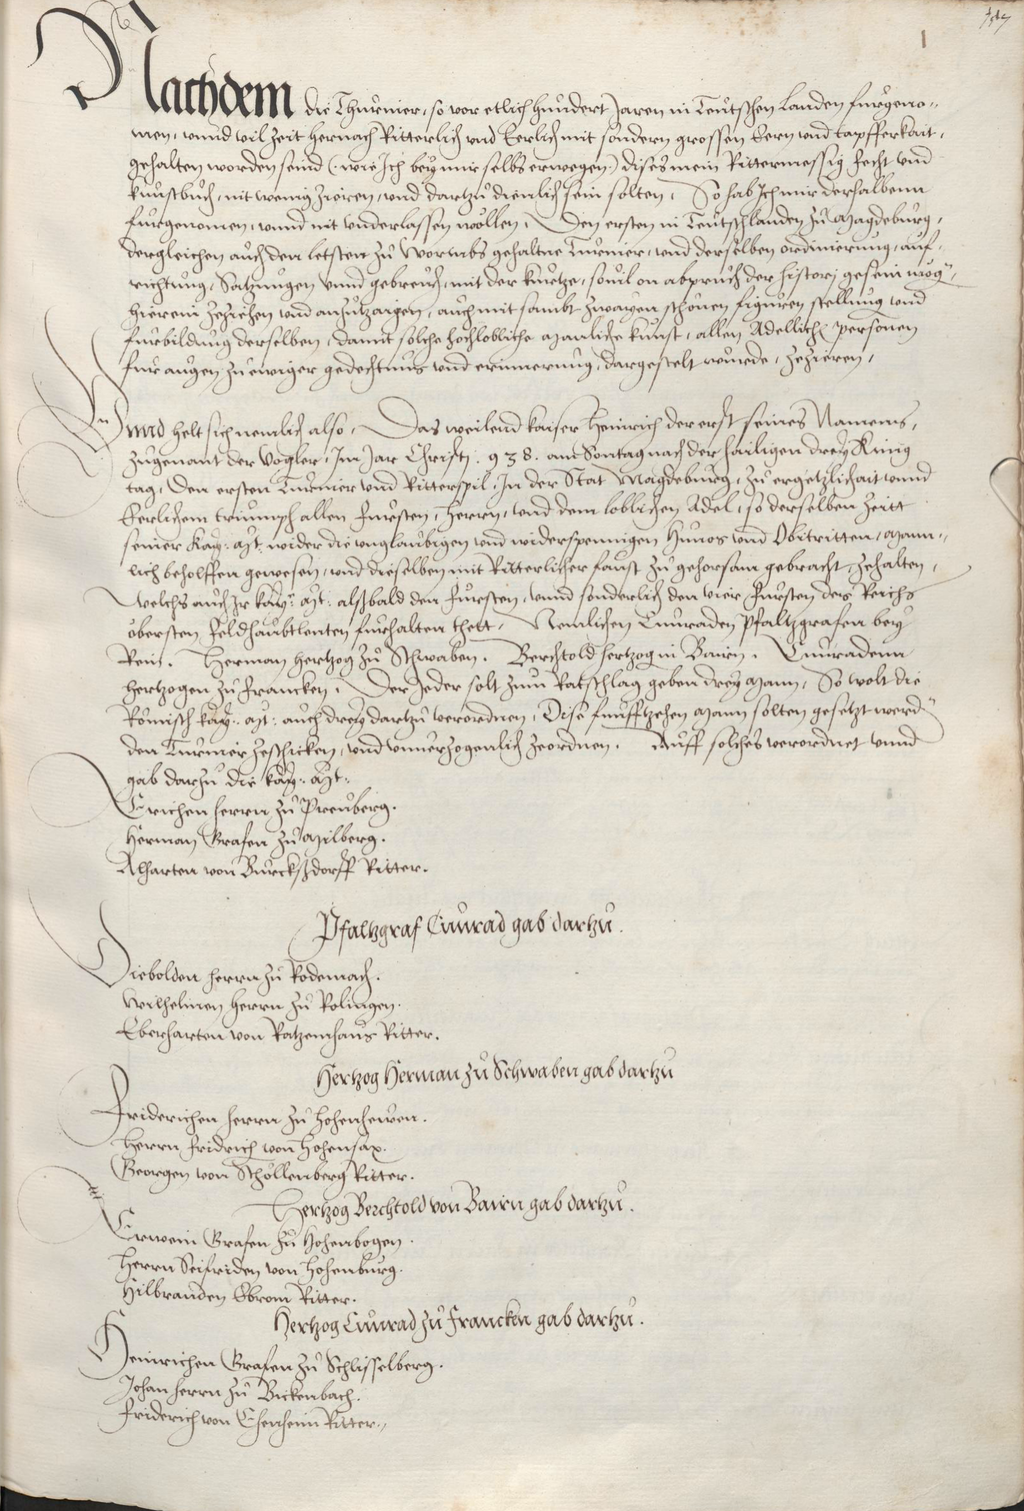 Nachdem die Thurnier, so vor etlich hundert Jaren in Teutschen Landen furgeno-
men, unnd vil zeit hernach Ritterlich und Eerlich mit sondern grossen Eern und tapfferkait,
gehalten worden seind (: wie Ich bey mir selbs erwegen :) dises mein Rittermessig fecht und
kunstbuch, nit wenig zieren, und dartzu dienlich sein solten, So hab Ich mir derhalbenn
furgenomen, unnd nit underlassen wollen, Den ersten in Teutschlanden zu Magdeburg,
dergleichen auch den letsten zu Wormbs gehaltne Turnier, und derselben ordinierung, auf-
richtung, Satzungen unnd gebreuch, mit der kurtze, sovil on abpruch der histori gesein mög
hierein zeziehen und anzutzaigen, auch mit sambt zwayen schönen figuren stellung und
furbildung derselben, damit solche hochlobliche Manliche kunst, allen Adellichen personen
fur augen zu ewiger gedechtnus und erinnerung, dargestelt wurde, zezieren,
Unnd helt sich nemlich also, Das weilend kaiser Heinrich der erst seines Namens,
zugenant der Vogler, Im Jar Christj. 938. am Sontag nach der hailigen drey König
tag, Den ersten Turnier und Ritterspil, In der Stat Magdeburg, zu ergetzlichait unnd
Eerlichem triumph allen Fursten, Herrn, und dem loblichen Adel, so derselben zeitt
seiner Kay: Mt: wider die unglaubigen und widerspennigen Hunos und Obitritten, Mann-
lich beholffen gewesen, und dieselben mit Ritterlicher faust zu gehorsam gebracht, zehalten,
Welchs auch Ir Kay: Mt: alsbald den Fursten, unnd sonderlich den vier Fursten des Reichs
öbersten Feldhaubtleuten furhalten thett, Nemlichen Cunraden Pfaltzgrafen bey
Rein. Herman Hertzog zu Schwaben. Berchtold hertzog in Bairn. Cunradenn
hertzogen zu Francken. Der Jeder solt zum Ratschlag geben drey Mann, So wolt die
Römisch kay: Mt: auch drey dartzu verordnen, Dise funffzehen Mann solten gesetzt werden
den Turnier zeschicken, und unverzogenlich zeordnen. Auff solches verordnet unnd
gab darzu die kay: Mt:
Erichen herrn zu Preuberg.
Herman Grafen zu Milberg.
Alharten von Burcksdorff Ritter.
Pfaltzgraf Cunrad gab dartzu.
Diebolden herrn zu Rodemach.
Wilhelmen herrn zu Rolingen.
Eberharten von Ratzenhaus Ritter.
Hertzog Herman zu Schwaben gab dartzu
Friderichen herrn zu Hohenhewen.
Herrn Fridrich von Hohensax.
Georgen von Schollenberg Ritter.
Hertzog Berchtold von Bairn gab dartzu.
Erwein Grafen zu Hohenbogen.
Herrn Seifriden von Hohenburg.
Hilbranden Ebron Ritter.
Hertzog Cunrad zu Francken gab dartzu.
Heinrichen Grafen zu Schlisselberg.
Johan herrn zu Bickenbach.
Friderich von Ehenheim Ritter.